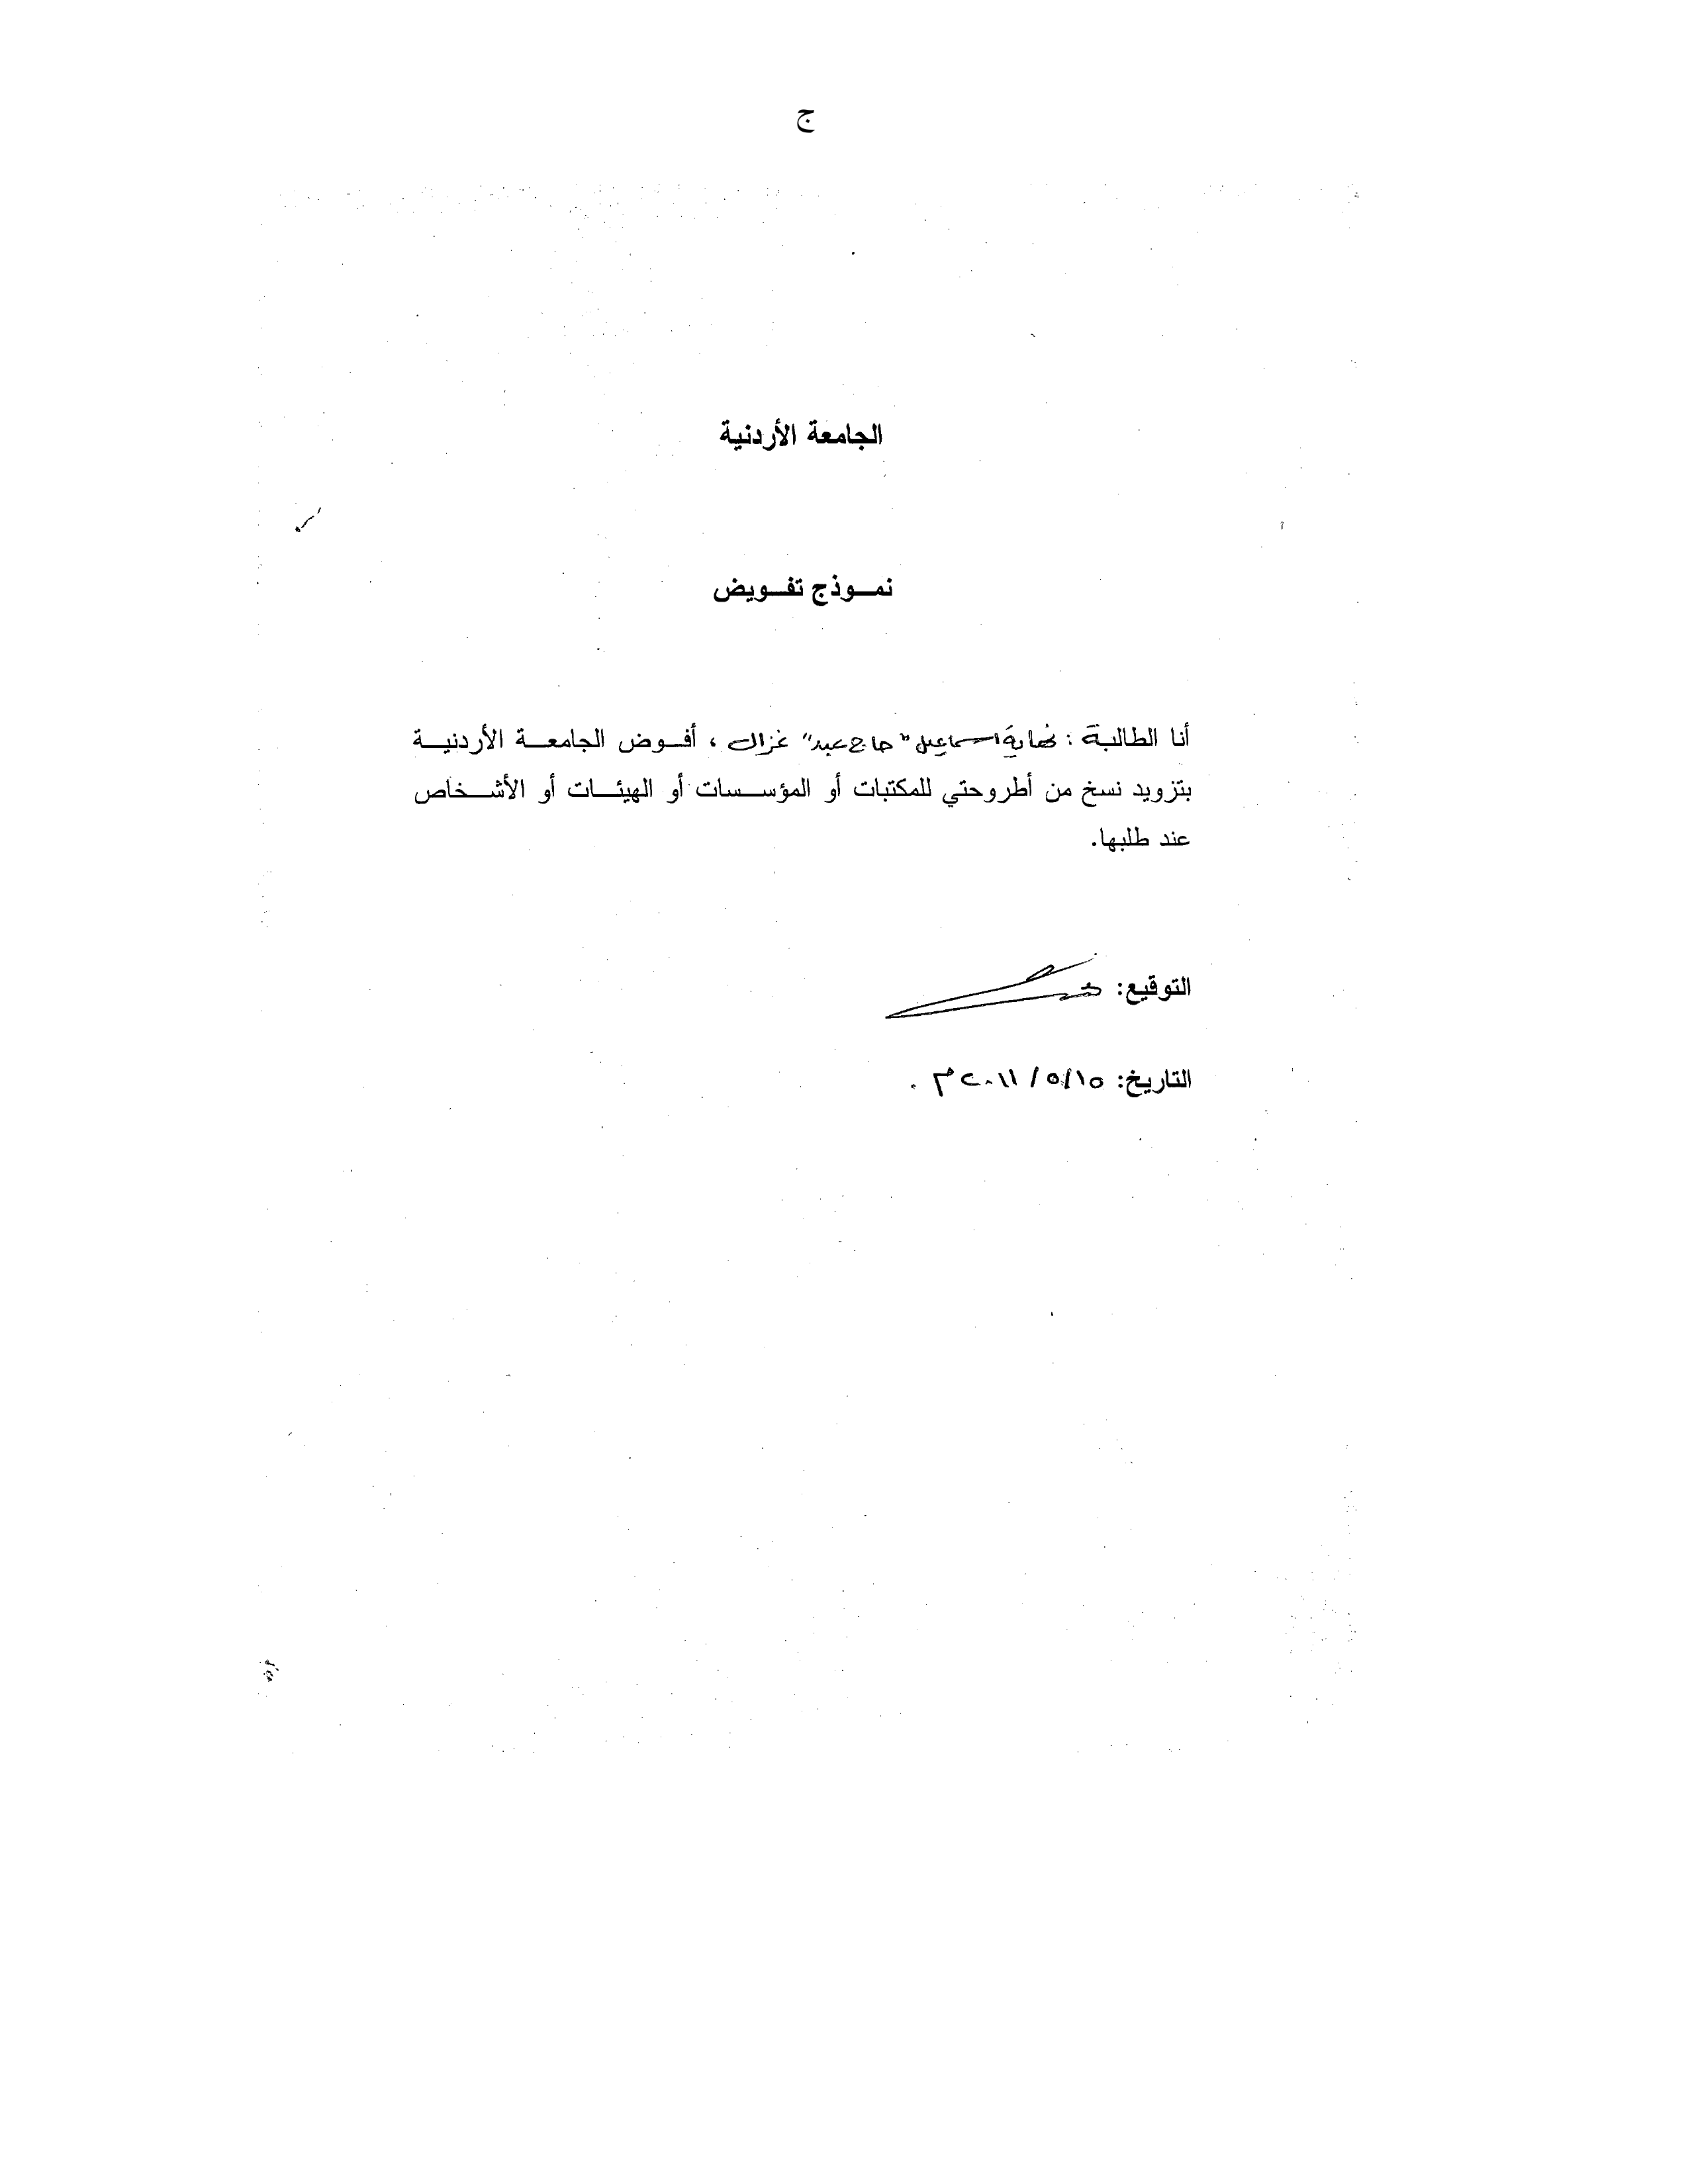 ج
الجامعة الأردنية
نمـوذج تفـويض
أنا الطالبة : نهاية اسماعيل "حاج عبد" غزال ، أفـوض الجامعـة الأردنيـة
بتزويد نسخ من أطروحتي للمكتبات أو المؤسـسات أو الهيئـات أو الأشـخاص
عند طلبها.
التوقيع:
التاريخ: ١٥/٥/ ٢٠١١ م .